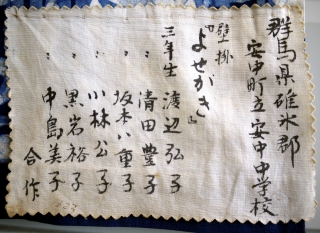 群馬県碓氷郡
安中町立安中中学校
壁掛
『よせがき』
三年生 渡辺弘子
〃 清田豊子
〃 坂本八重子
〃 小林公子
〃 黒岩裕子
〃 中島美子
合作